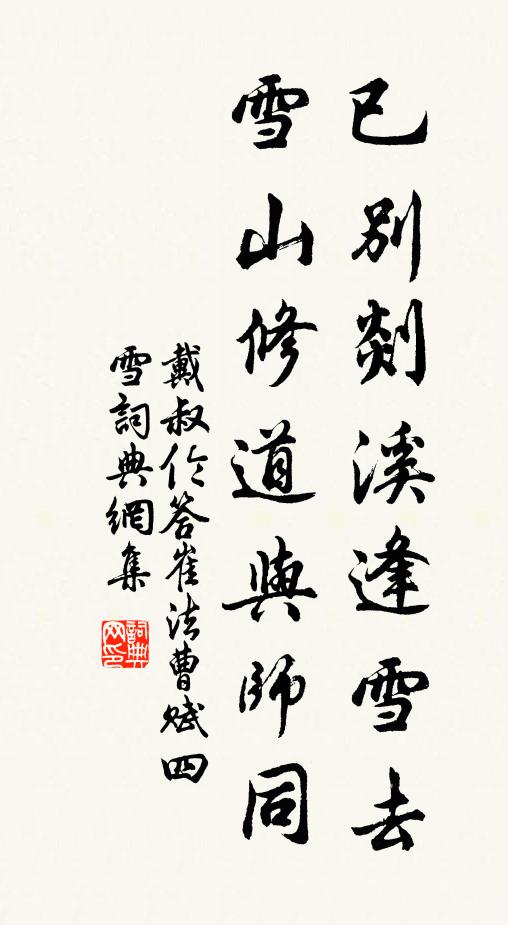 已別剡溪逢雪去
雪山修道與師同
戴叔伦答崔法曹賦四
雪詞典網集
詞典
网印